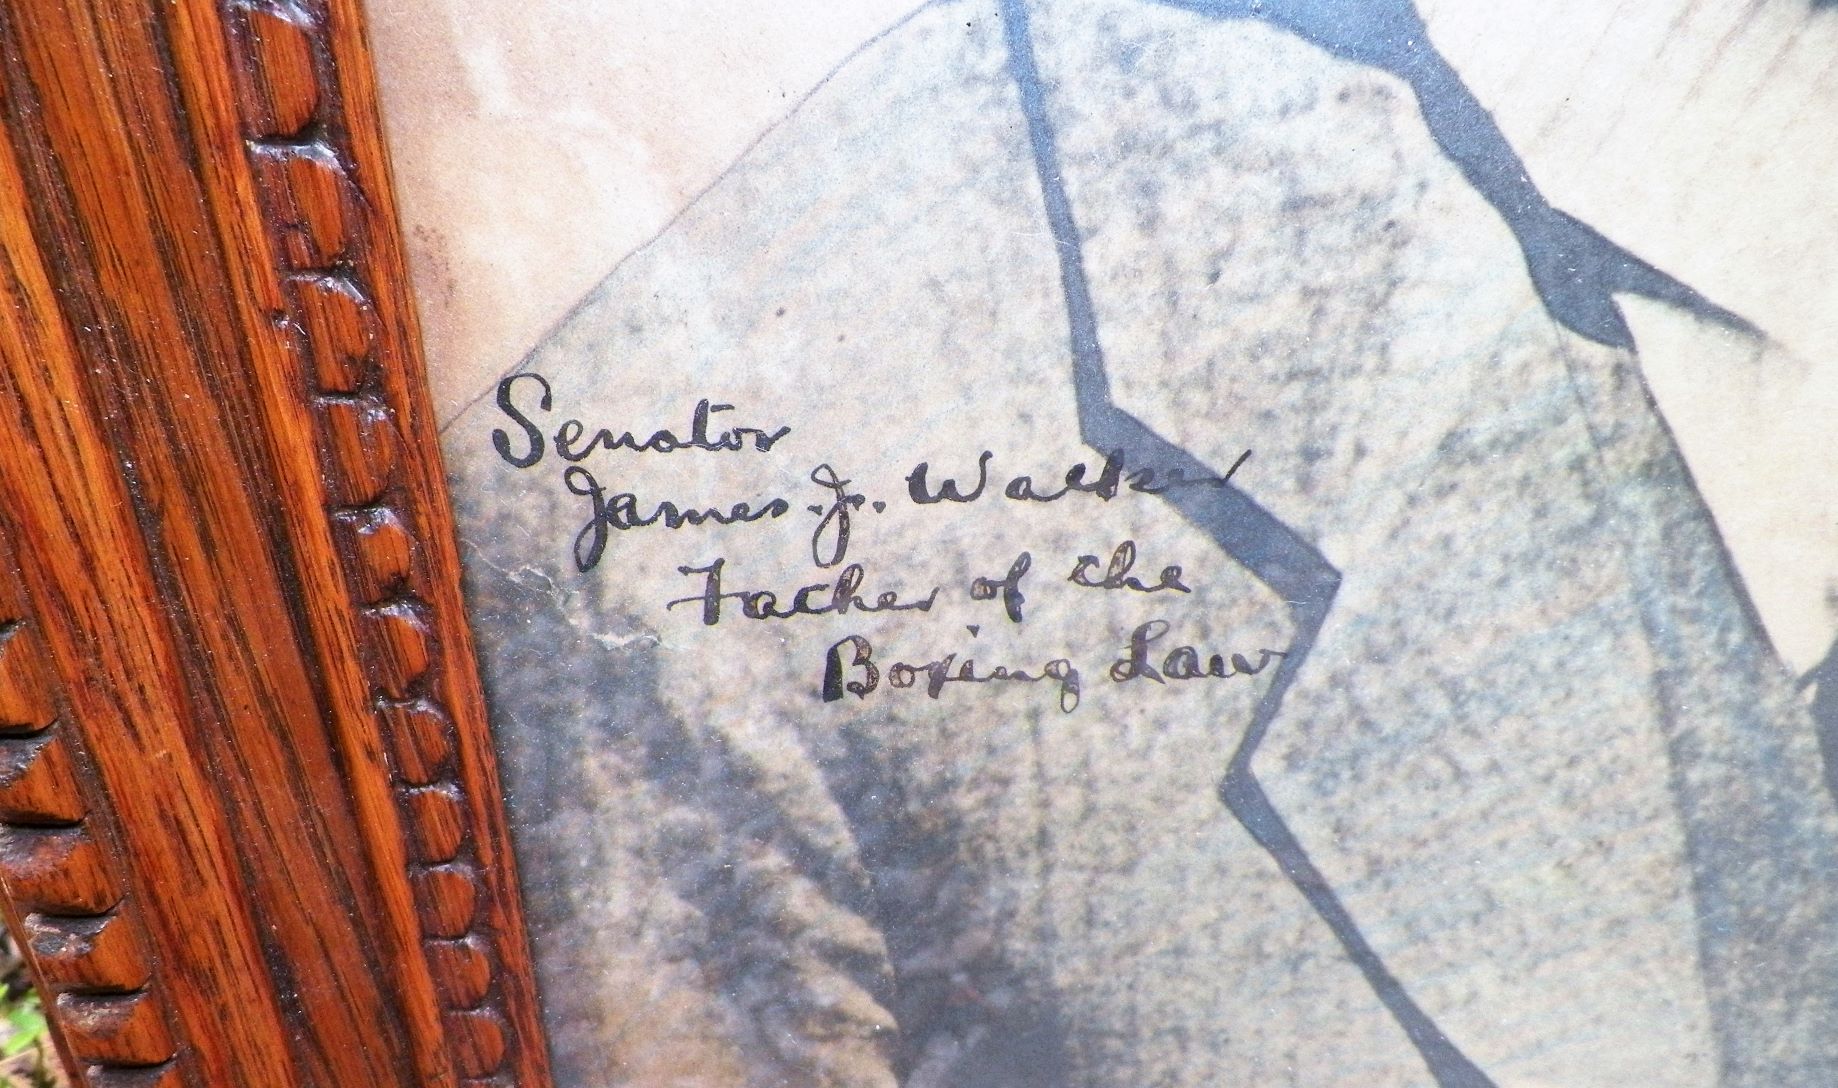 Senator
James. J. Walker
Father of the
Boxing Law